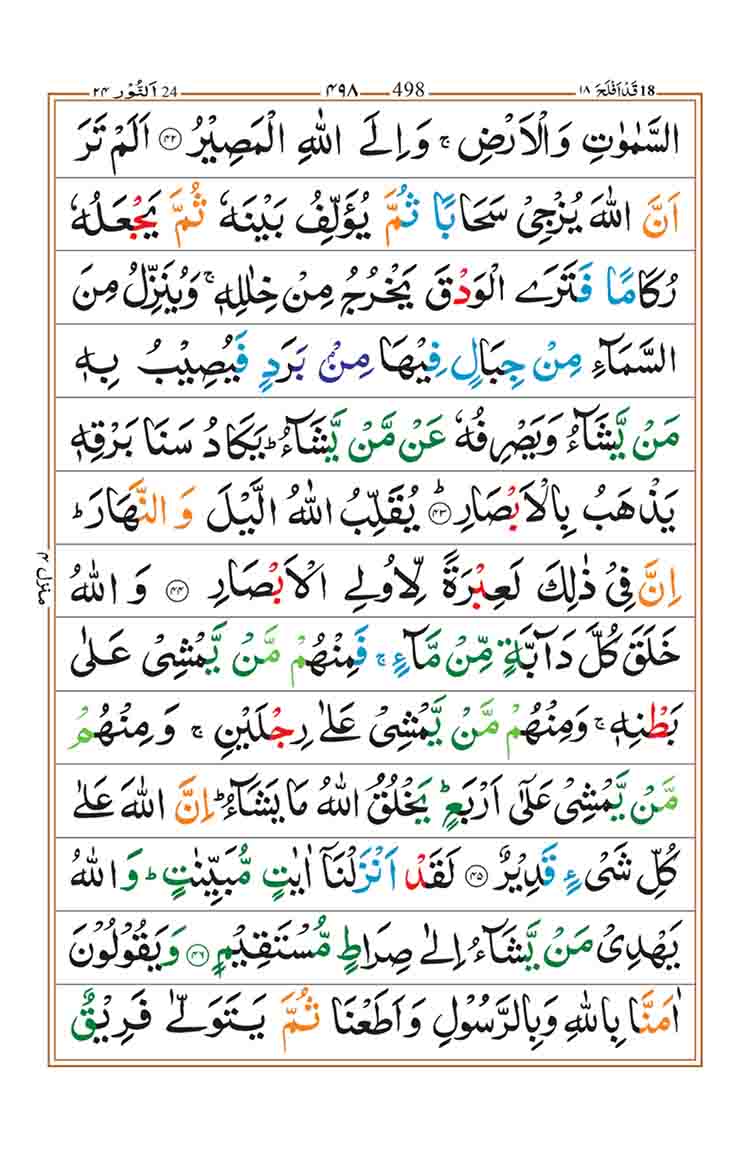 18 قَدْاَفْلَحَ ۱۸ 498 ۴۹۸ 24 اَلنُّوْر ۲۴
السَّمٰوٰتِ وَالْاَرْضِ ۚ وَاِلَى اللّٰهِ الْمَصِيْرُ ﴿۴۲﴾ اَلَمْ تَرَ
اَنَّ اللّٰهَ يُزْجِىْ سَحَابًا ثُمَّ يُؤَلِّفُ بَيْنَهٗ ثُمَّ يَجْعَلُهٗ
رُكَامًا فَتَرَى الْوَدْقَ يَخْرُجُ مِنْ خِلٰلِهٖ ۚ وَيُنَزِّلُ مِنَ
السَّمَآءِ مِنْ جِبَالٍ فِيْهَا مِنْۢ بَرَدٍ فَيُصِيْبُ بِهٖ
مَنْ يَّشَآءُ وَيَصْرِفُهٗ عَنْ مَّنْ يَّشَآءُ ؕ يَكَادُ سَنَا بَرْقِهٖ
يَذْهَبُ بِالْاَبْصَارِ ؕ ﴿۴۳﴾ يُقَلِّبُ اللّٰهُ الَّيْلَ وَ النَّهَارَ ؕ
اِنَّ فِىْ ذٰلِكَ لَعِبْرَةً لِّاُولِى الْاَبْصَارِ ﴿۴۴﴾ وَ اللّٰهُ
خَلَقَ كُلَّ دَآبَّةٍ مِّنْ مَّآءٍ ۚ فَمِنْهُمْ مَّنْ يَّمْشِىْ عَلٰى
بَطْنِهٖ ۚ وَمِنْهُمْ مَّنْ يَّمْشِىْ عَلٰى رِجْلَيْنِ ۚ وَ مِنْهُمْ
مَّنْ يَّمْشِىْ عَلٰٓى اَرْبَعٍ ؕ يَخْلُقُ اللّٰهُ مَا يَشَآءُ ؕ اِنَّ اللّٰهَ عَلٰى
كُلِّ شَىْءٍ قَدِيْرٌ ﴿۴۵﴾ لَقَدْ اَنْزَلْنَاۤ اٰيٰتٍ مُّبَيِّنٰتٍ ؕ وَاللّٰهُ
يَهْدِىْ مَنْ يَّشَآءُ اِلٰى صِرَاطٍ مُّسْتَقِيْمٍ ﴿۴۶﴾ وَيَقُوْلُوْنَ
اٰمَنَّا بِاللّٰهِ وَبِالرَّسُوْلِ وَاَطَعْنَا ثُمَّ يَتَوَلّٰى فَرِيْقٌ
منزل ۴